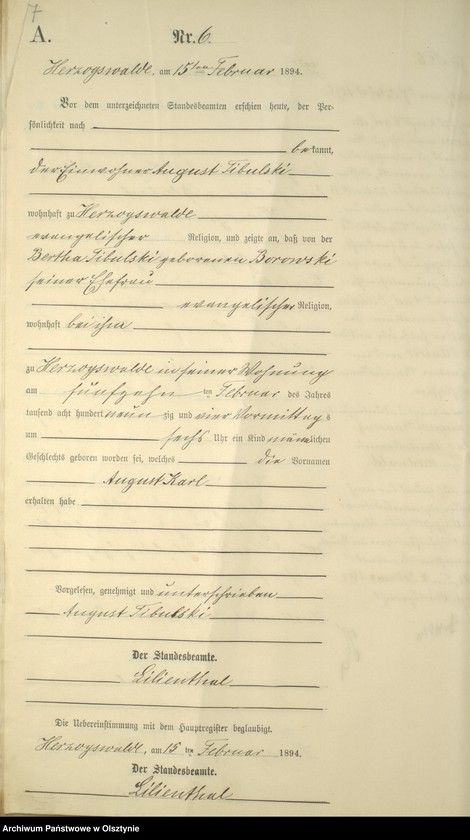 7
A. Nr. 6.
Herzogswalde, am 15ten Februar 1894.
Vor dem unterzeichneten Standesbeamten erschien heute, der Per-
sönlichkeit nach
bekannt,
der Einwohner August Tibulski
wohnhaft zu Herzogswalde
evangelischer Religion, und zeigte an, daß von der
Bertha Tibulski geborenen Borowski
seiner Ehefrau
evangelischer Religion,
wohnhaft bei ihm
zu Herzogswalde in seiner Wohnung
am fünfzehn ten Februar des Jahres
tausend acht hundert neunzig und vier Vormittags
um sechs Uhr ein Kind männlichen
Geschlechts geboren worden sei, welches die Vornamen
August Karl
erhalten habe
Vorgelesen, genehmigt und unterschrieben
August Tibulski
Der Standesbeamte.
Lilienthal
Die Uebereinstimmung mit dem Hauptregister beglaubigt.
Herzogswalde, am 15 ten Februar 1894.
Der Standesbeamte.
Lilienthal
Archiwum Państwowe w Olsztynie